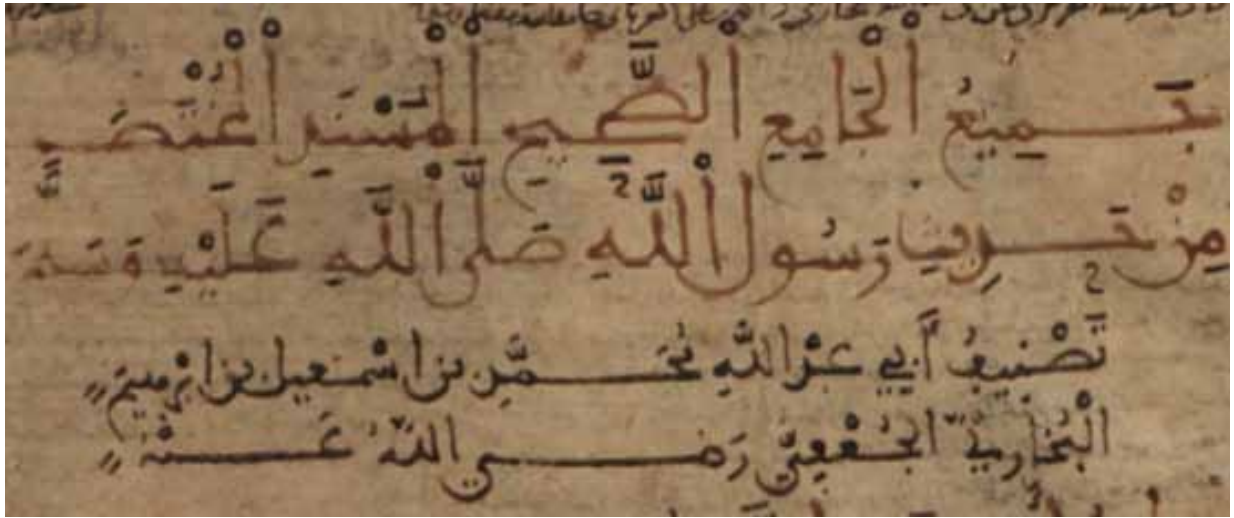 جَمِيعُ اَلْجَامِعِ اَلصَّحِيحِ اَلْمُسْنَدِ اَلْمُخْتَصَرِ
مِنْ حَدِيثِ رَسُولِ اَللَّهِ صَلَّى اَللَّهُ عَلَيْهِ وَسَلَّمَ
تَصْنِيفُ أَبِي عَبْدِ اللَّهِ مُحَمَّدِ بْنِ اسْمَعِيلَ بْنِ ابْرَهِيمَ
الْبُخَارِيِّ الْجُعْفِيِّ رَضِي اللَّهُ عَنْهُ